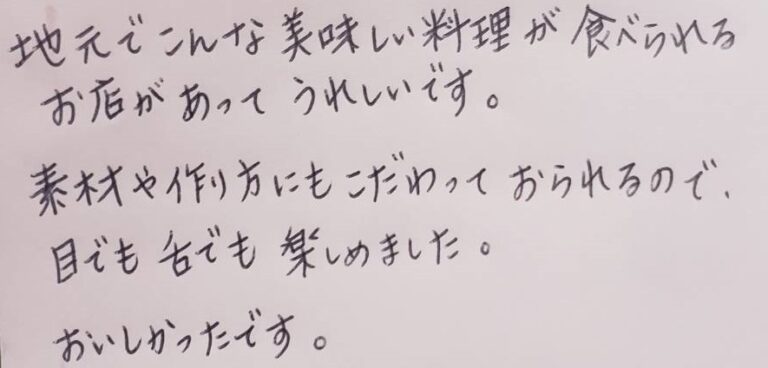 地元でこんな美味しい料理が食べられる
お店があってうれしいです。
素材や作り方にもこだわっておられるので、
目でも舌でも楽しめました。
おいしかったです。